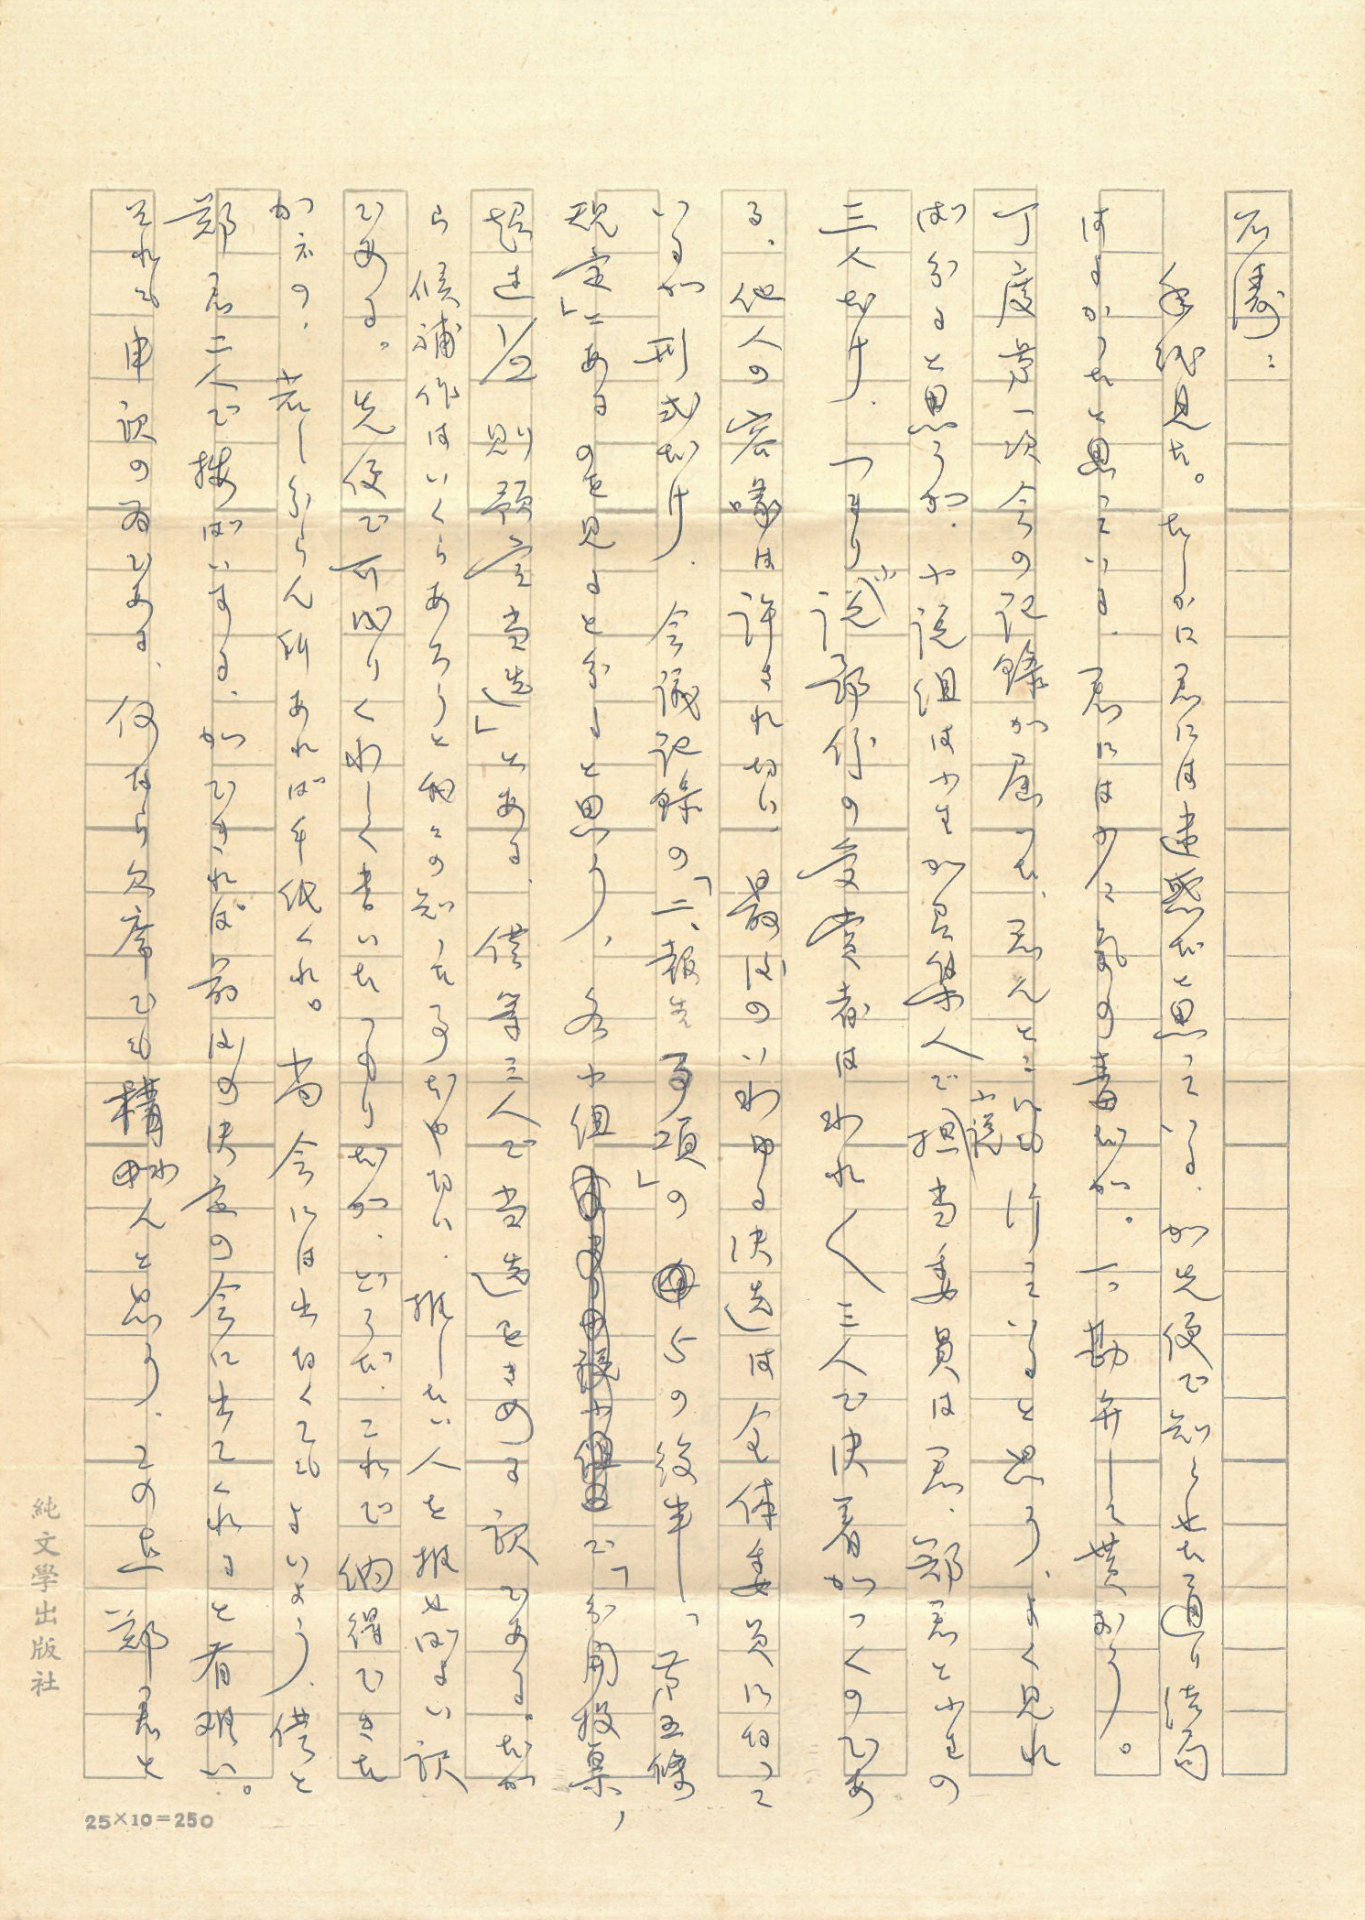 石濤:
手紙見た。たしかに君には迷惑だと思っている。が先便で知らせた通り結局
はよかったと思っている。君には少々気の毒だが。一つ勘弁して貰おう。
丁度第一次会の記録が届いた、君んところにも行っていると思う、よく見れ
ば分ると思うが、小説組は小生が召集人で小説担当委員は君、鄭君と小生の
三人だけ、つまり小説部作の受賞者はわれ〱三人で決着がつくのであ
る、他人の容喙は許されない、最后のいわゆる決選は全体委員になって
いるが形式だけ、会議記錄の「二、報告事項」の5の後半、「第五條
規定」にあるのを見ると分ると思う、各小組で「分開投票,
超過1/2則預定當選」とある、僕等三人で当選をきめる訳である。だか
ら候補作はいくらあろうと我々の知った事ぢやない、推したい人を推せばよい訳
である。先便で可成りくわしく書いたつもりだが、どうだ、これで納得できた
かネの、若し分らん所あれば手紙くれ。尚会には出なくてもよいよう、僕と
鄭君二人で捜ばいする、ができれば前回の決定の会に出てくれると有難い。
それも申訳の為である、何なら欠席でも構わんと思う、この点鄭君と
純文學出版社
25×10=250